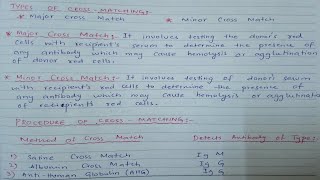 TYPES OF CROSS-MATCHING:-
* Major Cross Match * Minor Cross Match
* Major Cross Match:- It involves testing the donor's red
cells with recipient's serum to determine the presence of
any antibody which may cause hemolysis or agglutination
of donor red cells.
* Minor Cross Match:- It involves testing of donor's serum
with recipient's red cells to determine the presence of
any antibody which may cause hemolysis or agglutination
of recipients red cells.
PROCEDURE OF CROSS-MATCHING:-
Method of Cross Match Detects Antibody of Type:-
1) Saline Cross Match Ig M
2) Albumin Cross Match Ig G
3) Anti-Human Globulin (AHG) Ig G